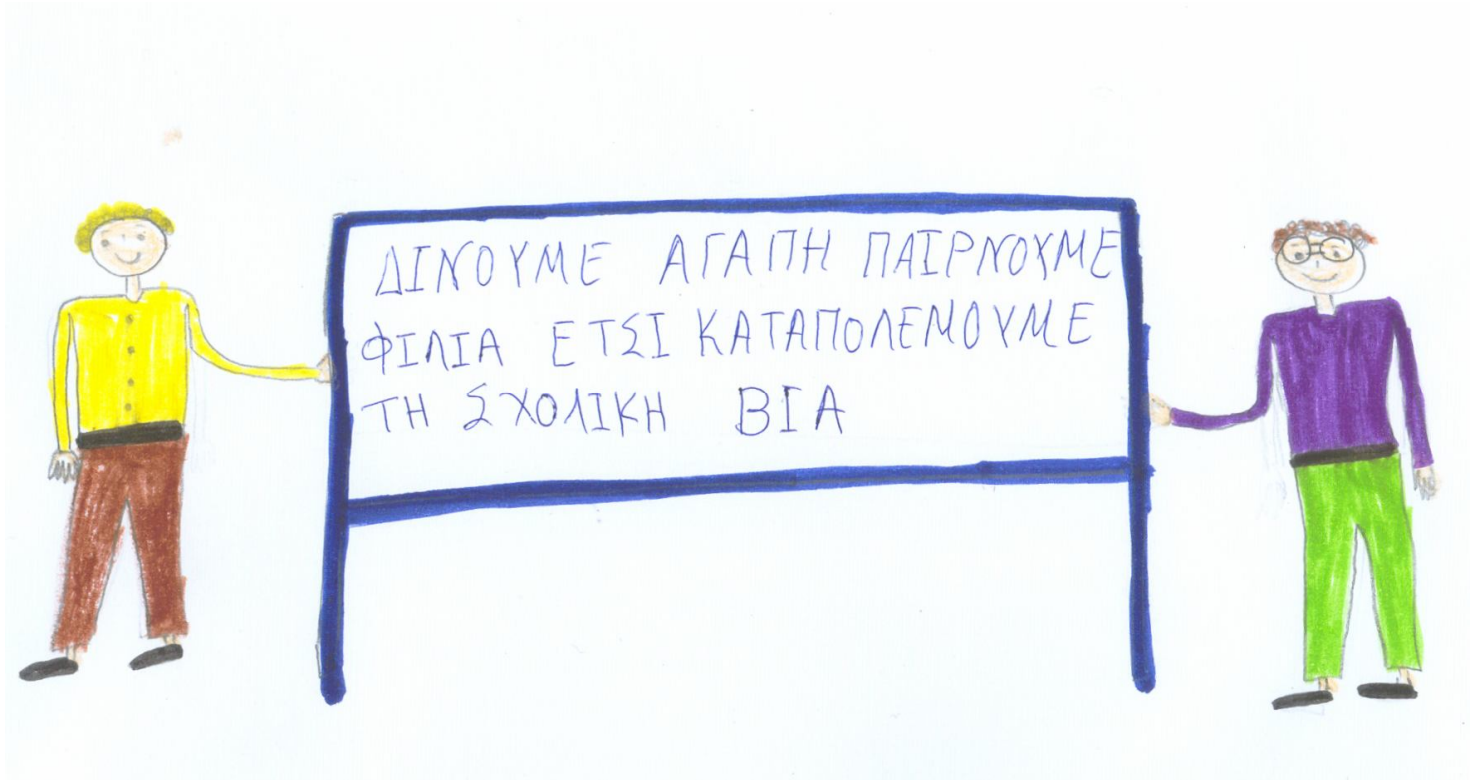 ΔΙΝΟΥΜΕ ΑΓΑΠΗ ΠΑΙΡΝΟΥΜΕ
ΦΙΛΙΑ ΕΤΣΙ ΚΑΤΑΠΟΛΕΜΟΥΜΕ
ΤΗ ΣΧΟΛΙΚΗ ΒΙΑ